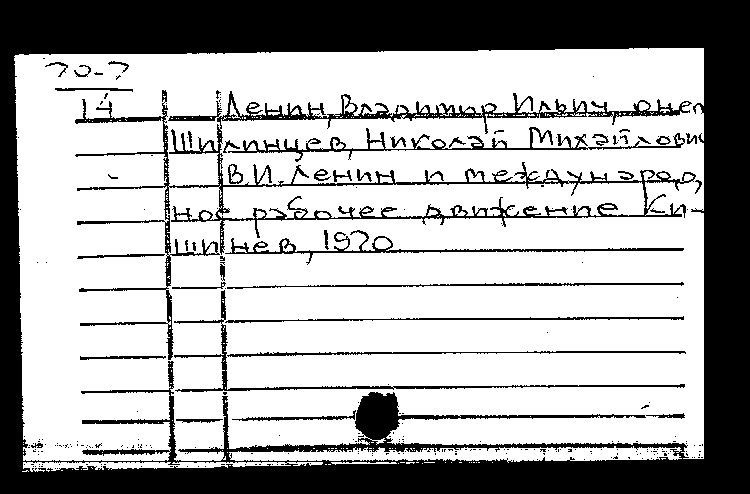 70-7
14
Ленин, Владимир Ильич, о нем
Шилинцев, Николай Михайлович
В.И. Ленин и международ,
ное рабочее движение Ки-
шинев, 1970